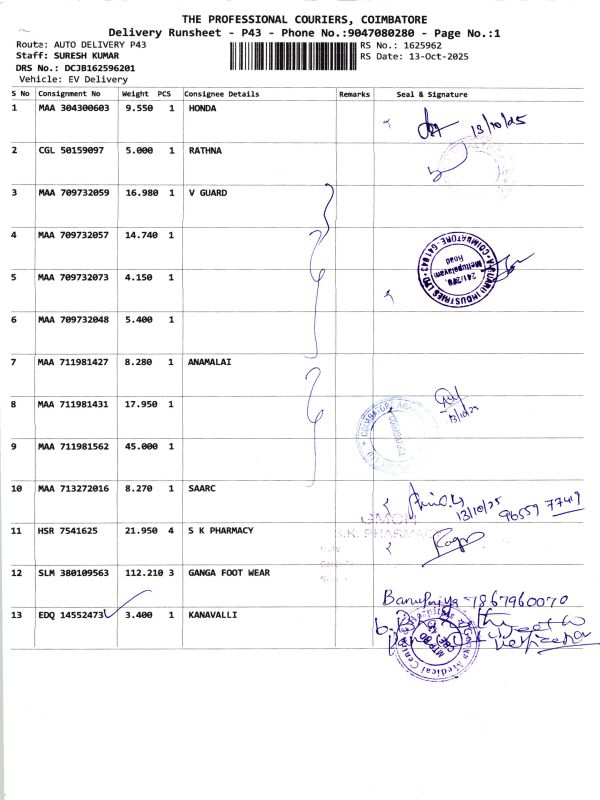 THE PROFESSIONAL COURIERS, COIMBATORE
Delivery Runsheet - P43 - Phone No.:9047080280 - Page No.:1
Route: AUTO DELIVERY P43
Staff: SURESH KUMAR
DRS No.: DCJB162596201
Vehicle: EV Delivery
RS No.: 1625962
RS Date: 13-Oct-2025
S No Consignment No Weight PCS Consignee Details Remarks Seal & Signature
1 MAA 304300603 9.550 1 HONDA
13/10/25
2 CGL 50159097 5.000 1 RATHNA
3 MAA 709732059 16.980 1 V GUARD
4 MAA 709732057 14.740 1
INDUSTRIES LTD
241/2
Mettupalayam
Road
COIMBATORE-641 043
5 MAA 709732073 4.150 1
6 MAA 709732048 5.400 1
7 MAA 711981427 8.280 1 ANAMALAI
8 MAA 711981431 17.950 1
13/10/25
COIMBATORE
9 MAA 711981562 45.000 1
10 MAA 713272016 8.270 1 SAARC
13/10/25 96559 77419
11 HSR 7541625 21.950 4 S K PHARMACY
S.K. PHARMA
12 SLM 380109563 112.210 3 GANGA FOOT WEAR
Banupriya - 7867960070
13 EDQ 14552473 3.400 1 KANAVALLI
Medical Cent